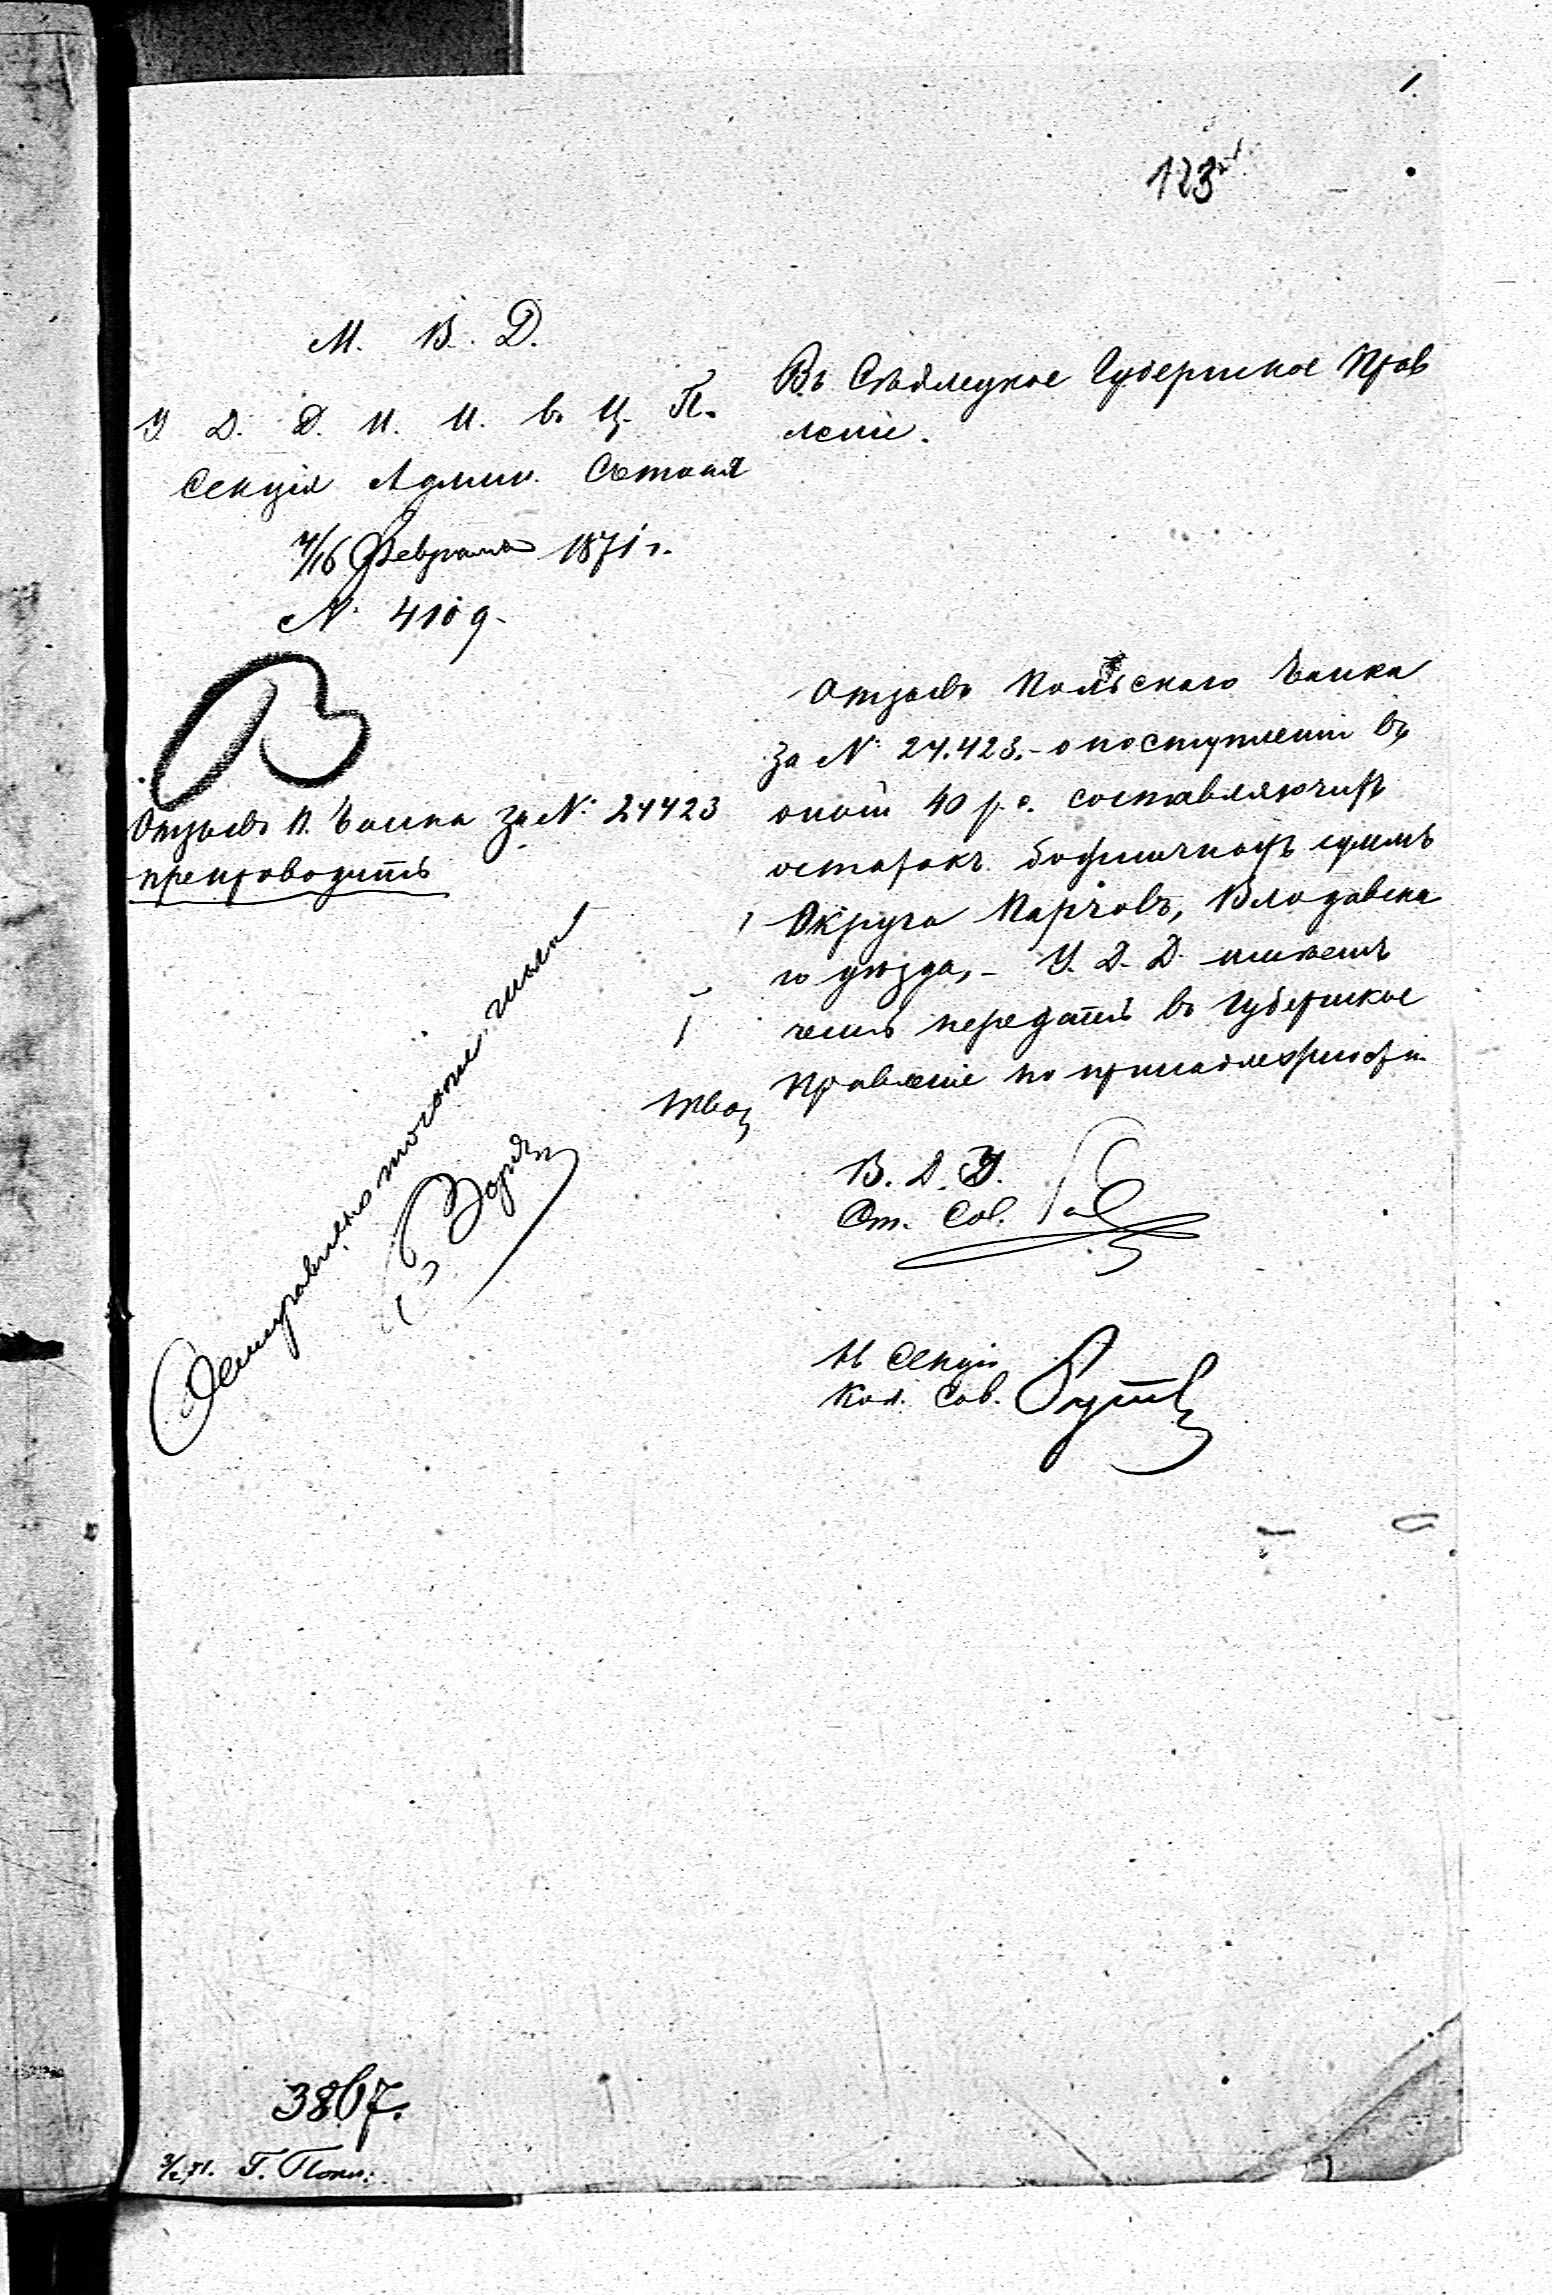 1.
123
М. В. Д.
У Д. Д. И. И. въ Ц. П.
Секція Админ. Сѣтная
4/16 Февраля 1871 г.
№ 4109.
Отзывъ П. Банка за № 24423
препроводить
Въ Сѣдлецкое Губернское Прав
леніе.
Отзывъ Польскаго Банка
за № 24.423. - о поступленіи въ
оный 40 р. с. составляющихъ
остатокъ божничныхъ суммъ
Округа Парчовъ, Влодавска
го уѣзда, - У. Д. Д. имѣетъ
честь передать въ Губернское
Правленіе по принадлежности.
В. Д. У.
Ст. Сов.
Н. Секціи
Кол. Сов.
3867.
Г. Покл.